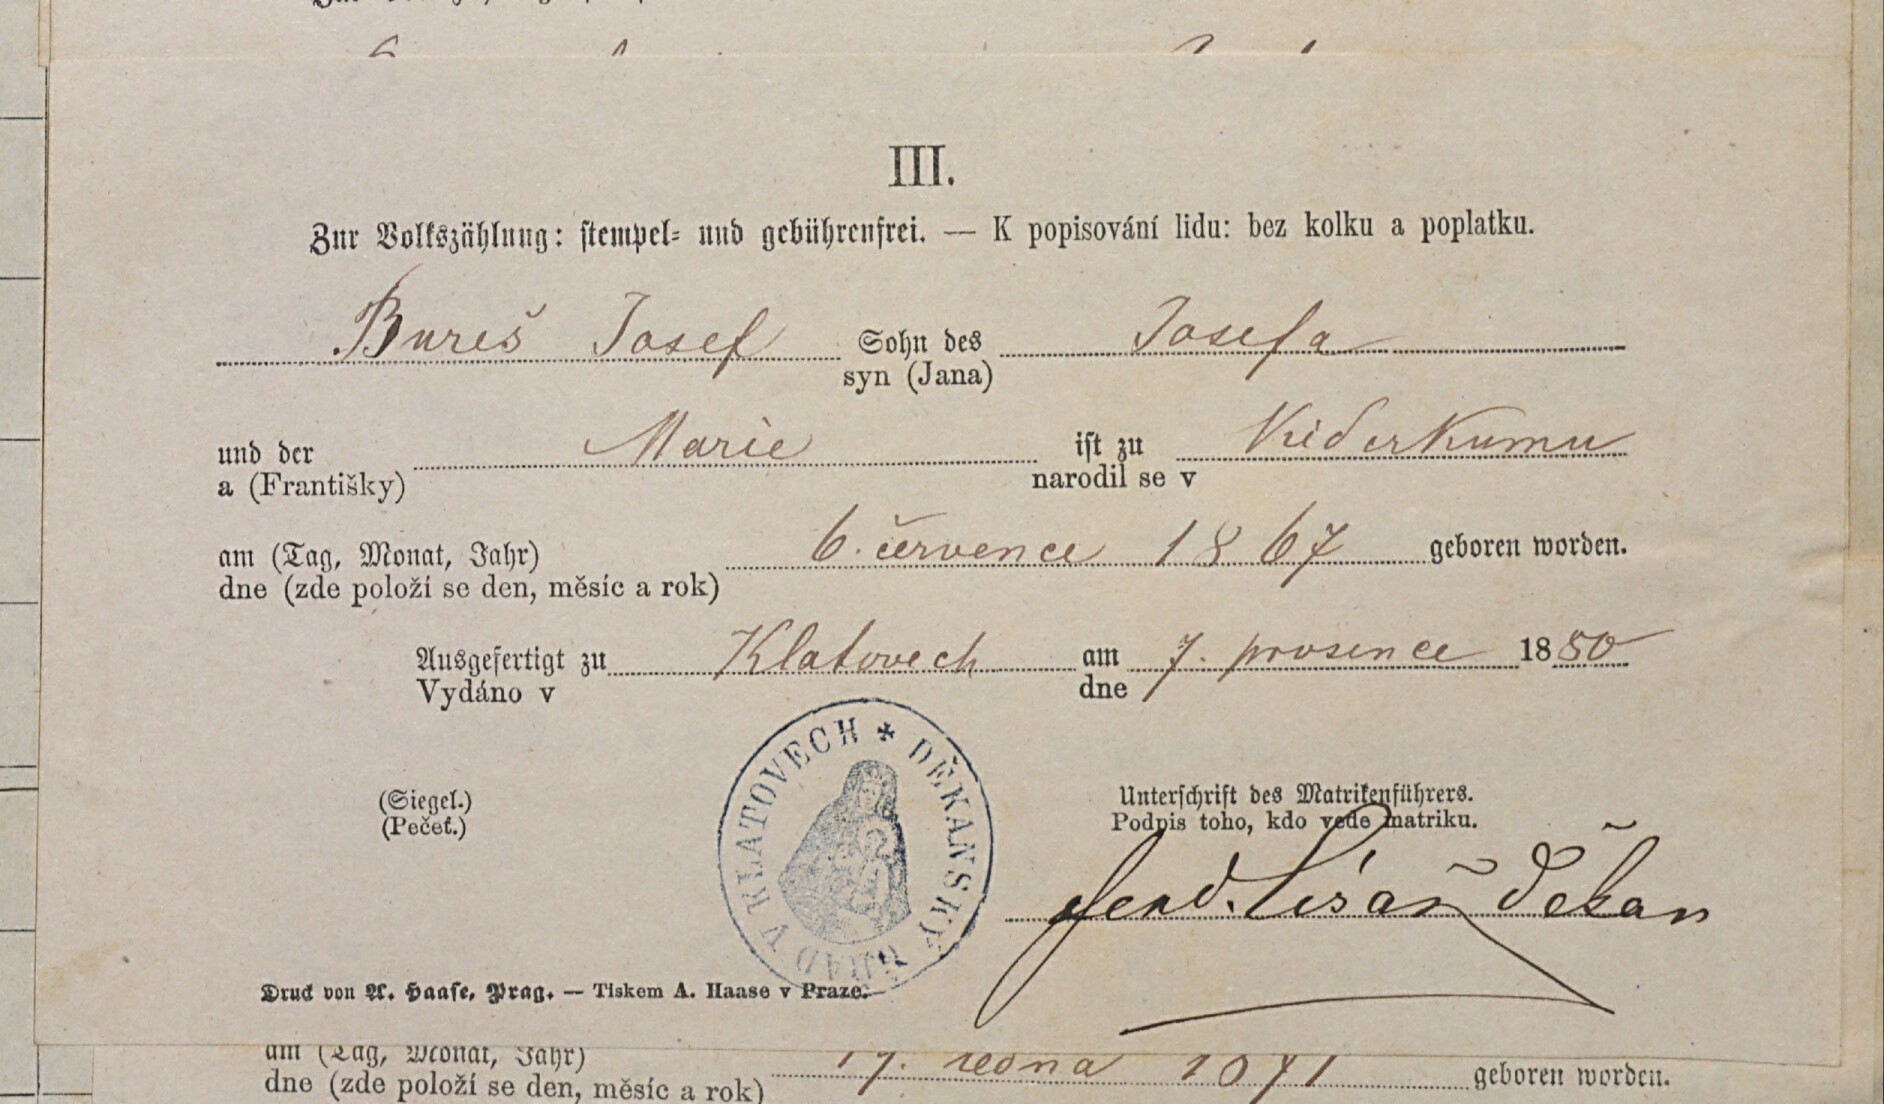 III.
Zur Volkszählung: stempel- und gebührenfrei. — K popisování lidu: bez kolku a poplatku.
Bureš Josef Sohn des Josefa
syn (Jana)
und der Marie ist zu
a (Františky) narodil se v
am (Tag, Monat, Jahr) 6. července 1867 geboren worden.
dne (zde položí se den, měsíc a rok)
Ausgefertigt zu Klatovech am 7. prosence 1880
Vydáno v dne
DĚKANSKÝ ÚŘAD V KLATOVECH *
(Siegel.) Unterschrift des Matrikenführers.
(Pečeť.) Podpis toho, kdo vede matriku.
Ferd. děkan
Druck von A. Haase, Prag. — Tiskem A. Haase v Praze.
am (Tag, Monat, Jahr) 19. ledna 1871 geboren worden.
dne (zde položí se den, měsíc a rok)